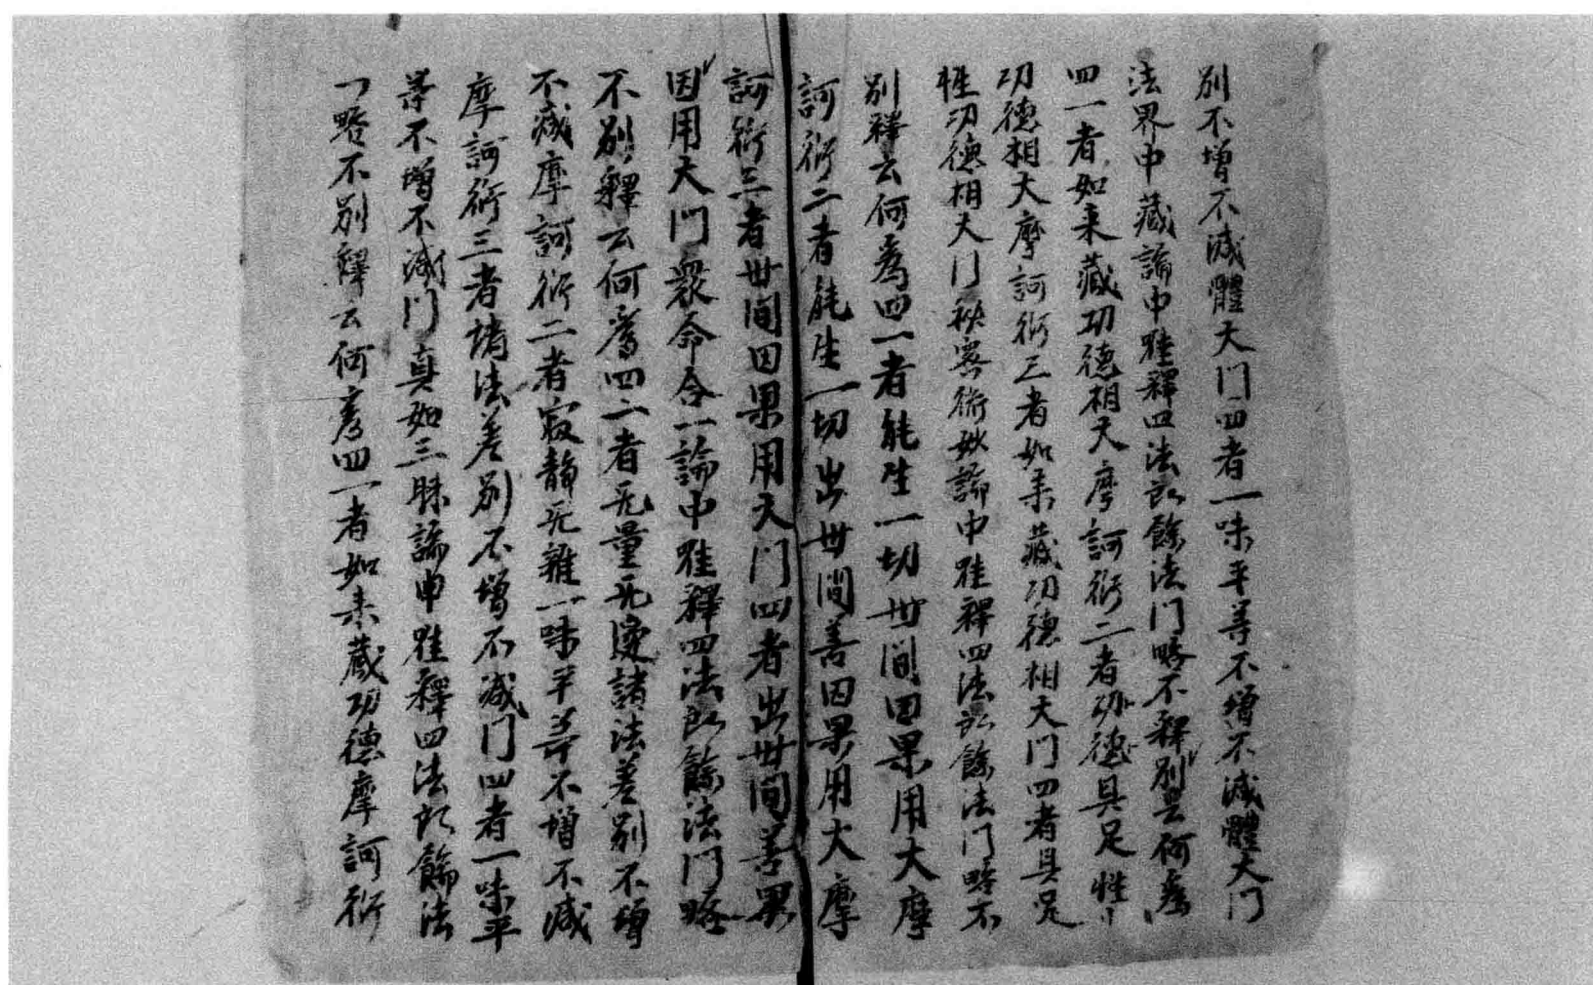 別不增不減體大門四者一味平等不增不減體大門
法界中藏論中唯釋四法所餘法門略不釋別云何為
四一者如来藏功德相大摩訶衍二者功德具足性
功德相大摩訶衍三者如来藏功德相大門四者具足
性功德相大門秘密微妙論中唯釋四法所餘法門略不
別釋云何為四一者能生一切世間因果用大摩
訶衍二者能生一切出世間善因果用大摩
訶衍三者世間因果用大門四者出世間善果
因用大門衆命合一論中唯釋四法所餘法門略
不別釋云何為四一者无量无邊諸法差別不增
不減摩訶衍二者寂静无雜一味平等不增不減
摩訶衍三者諸法差別不增不減門四者一味平
等不增不減門真如三昧論中唯釋四法所餘法
門略不別釋云何為四一者如来藏功德摩訶衍